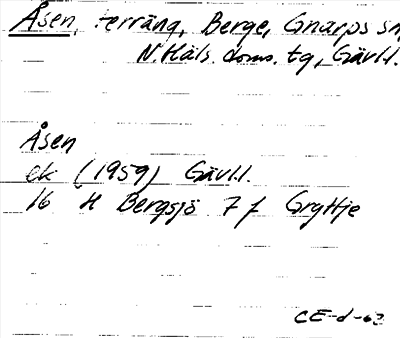 Åsen, terräng, Berge, Gnarps sn,
N. Häls. doms. tg, Gävl.l.
Åsen
ek (1959) Gävl.l.
16 H Bergsjö 7 f Gryttje
CE-d-62